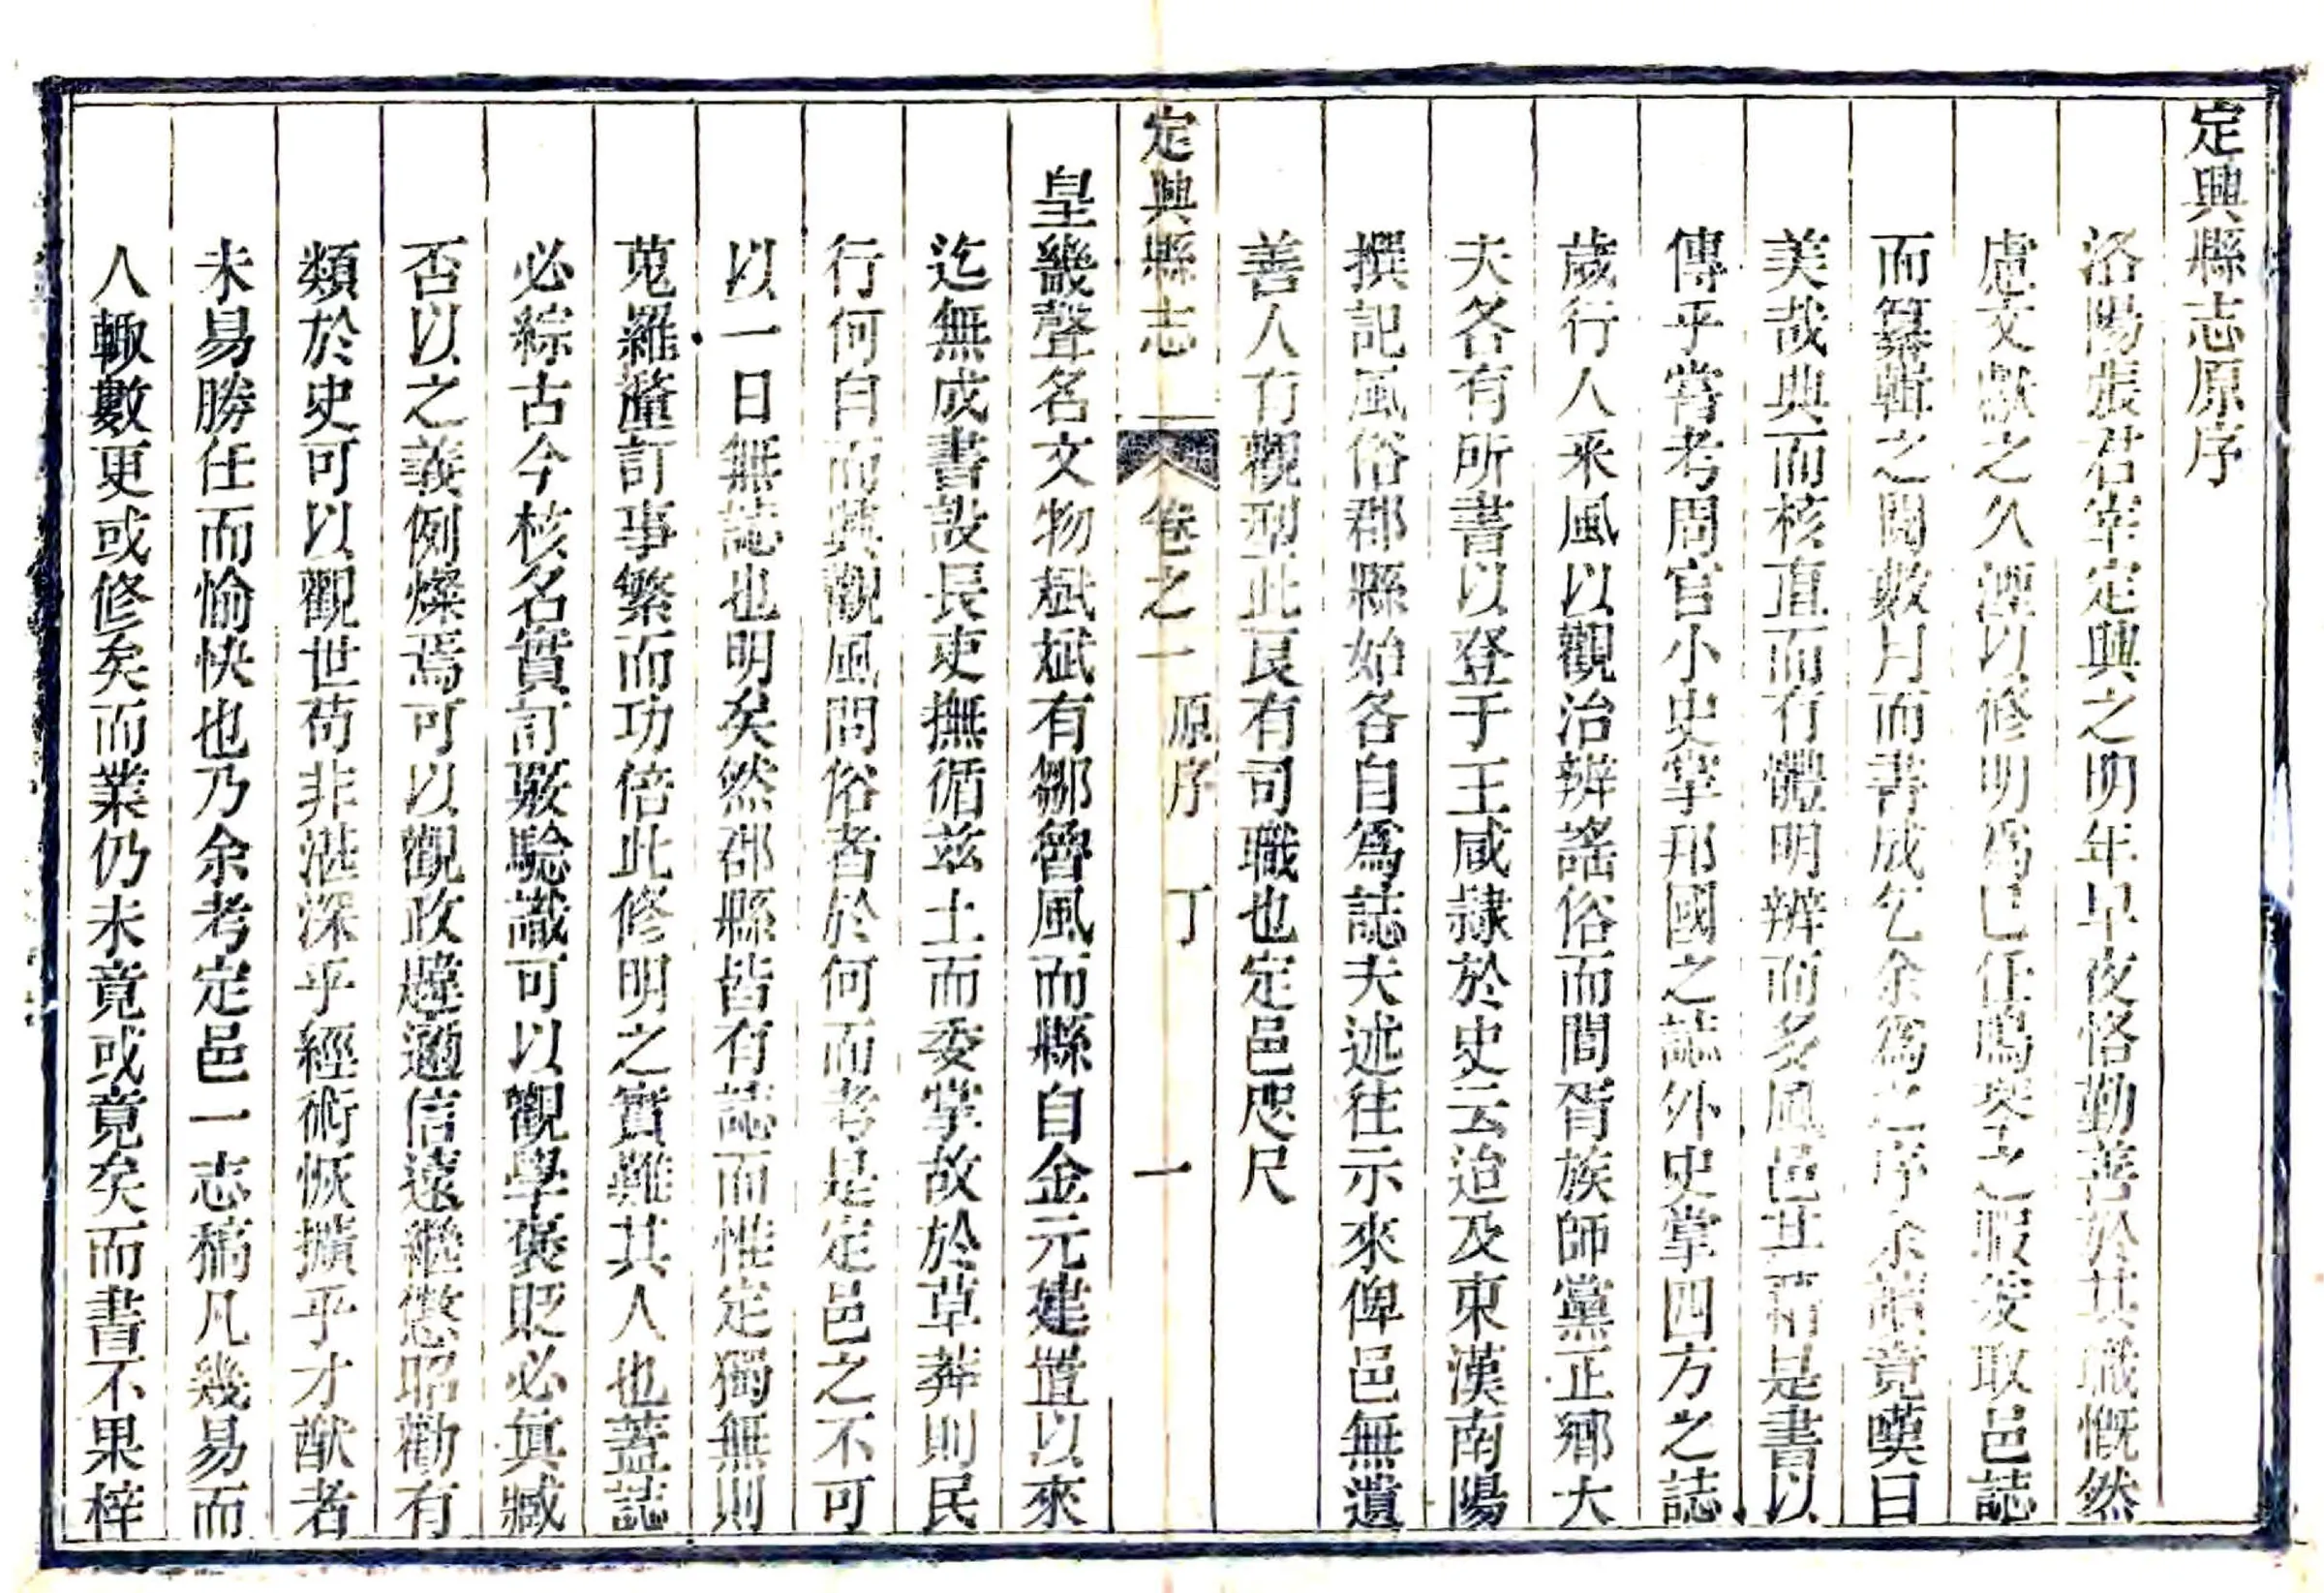 定興縣志原序
洛陽張君宰定興之明年早夜恪勤善於其職慨然
慮文獻之久湮以修明爲己任鳴琴之暇爰取邑誌
而纂輯之閱數月而書成乞余爲之序余讀竟嘆曰
美哉典而核直而有體明辨而多風邑其藉是書以
傳乎嘗考周官小史掌邦國之誌外史掌四方之誌
歲行人采風以觀治辨謠俗而閭胥族師黨正鄉大
夫各有所書以登于王咸隸於史云迨及東漢南陽
撰記風俗郡縣始各自爲誌夫述往示來俾邑無遺
善人有觀型此良有司職也定邑咫尺
定興縣志 卷之一 原序 丁 一
皇畿聲名文物斌斌有鄒魯風而縣自金元建置以來
迄無成書設長吏撫循兹土而委掌故於草莽則民
行何自而興觀風問俗者於何而考是定邑之不可
以一日無誌也明矣然郡縣皆有誌而惟定獨無則
蒐羅釐訂事繁而功倍此修明之實難其人也蓋誌
必綜古今核名實訂駁驗識可以觀學褒貶必眞臧
否以之義例燦焉可以觀政韙邇信遠繼懲昭勸有
類於史可以觀世苟非湛深乎經術恢擴乎才猷者
未易勝任而愉快也乃余考定邑一志稿凡幾易而
人輙數更或修矣而業仍未竟或竟矣而書不果梓